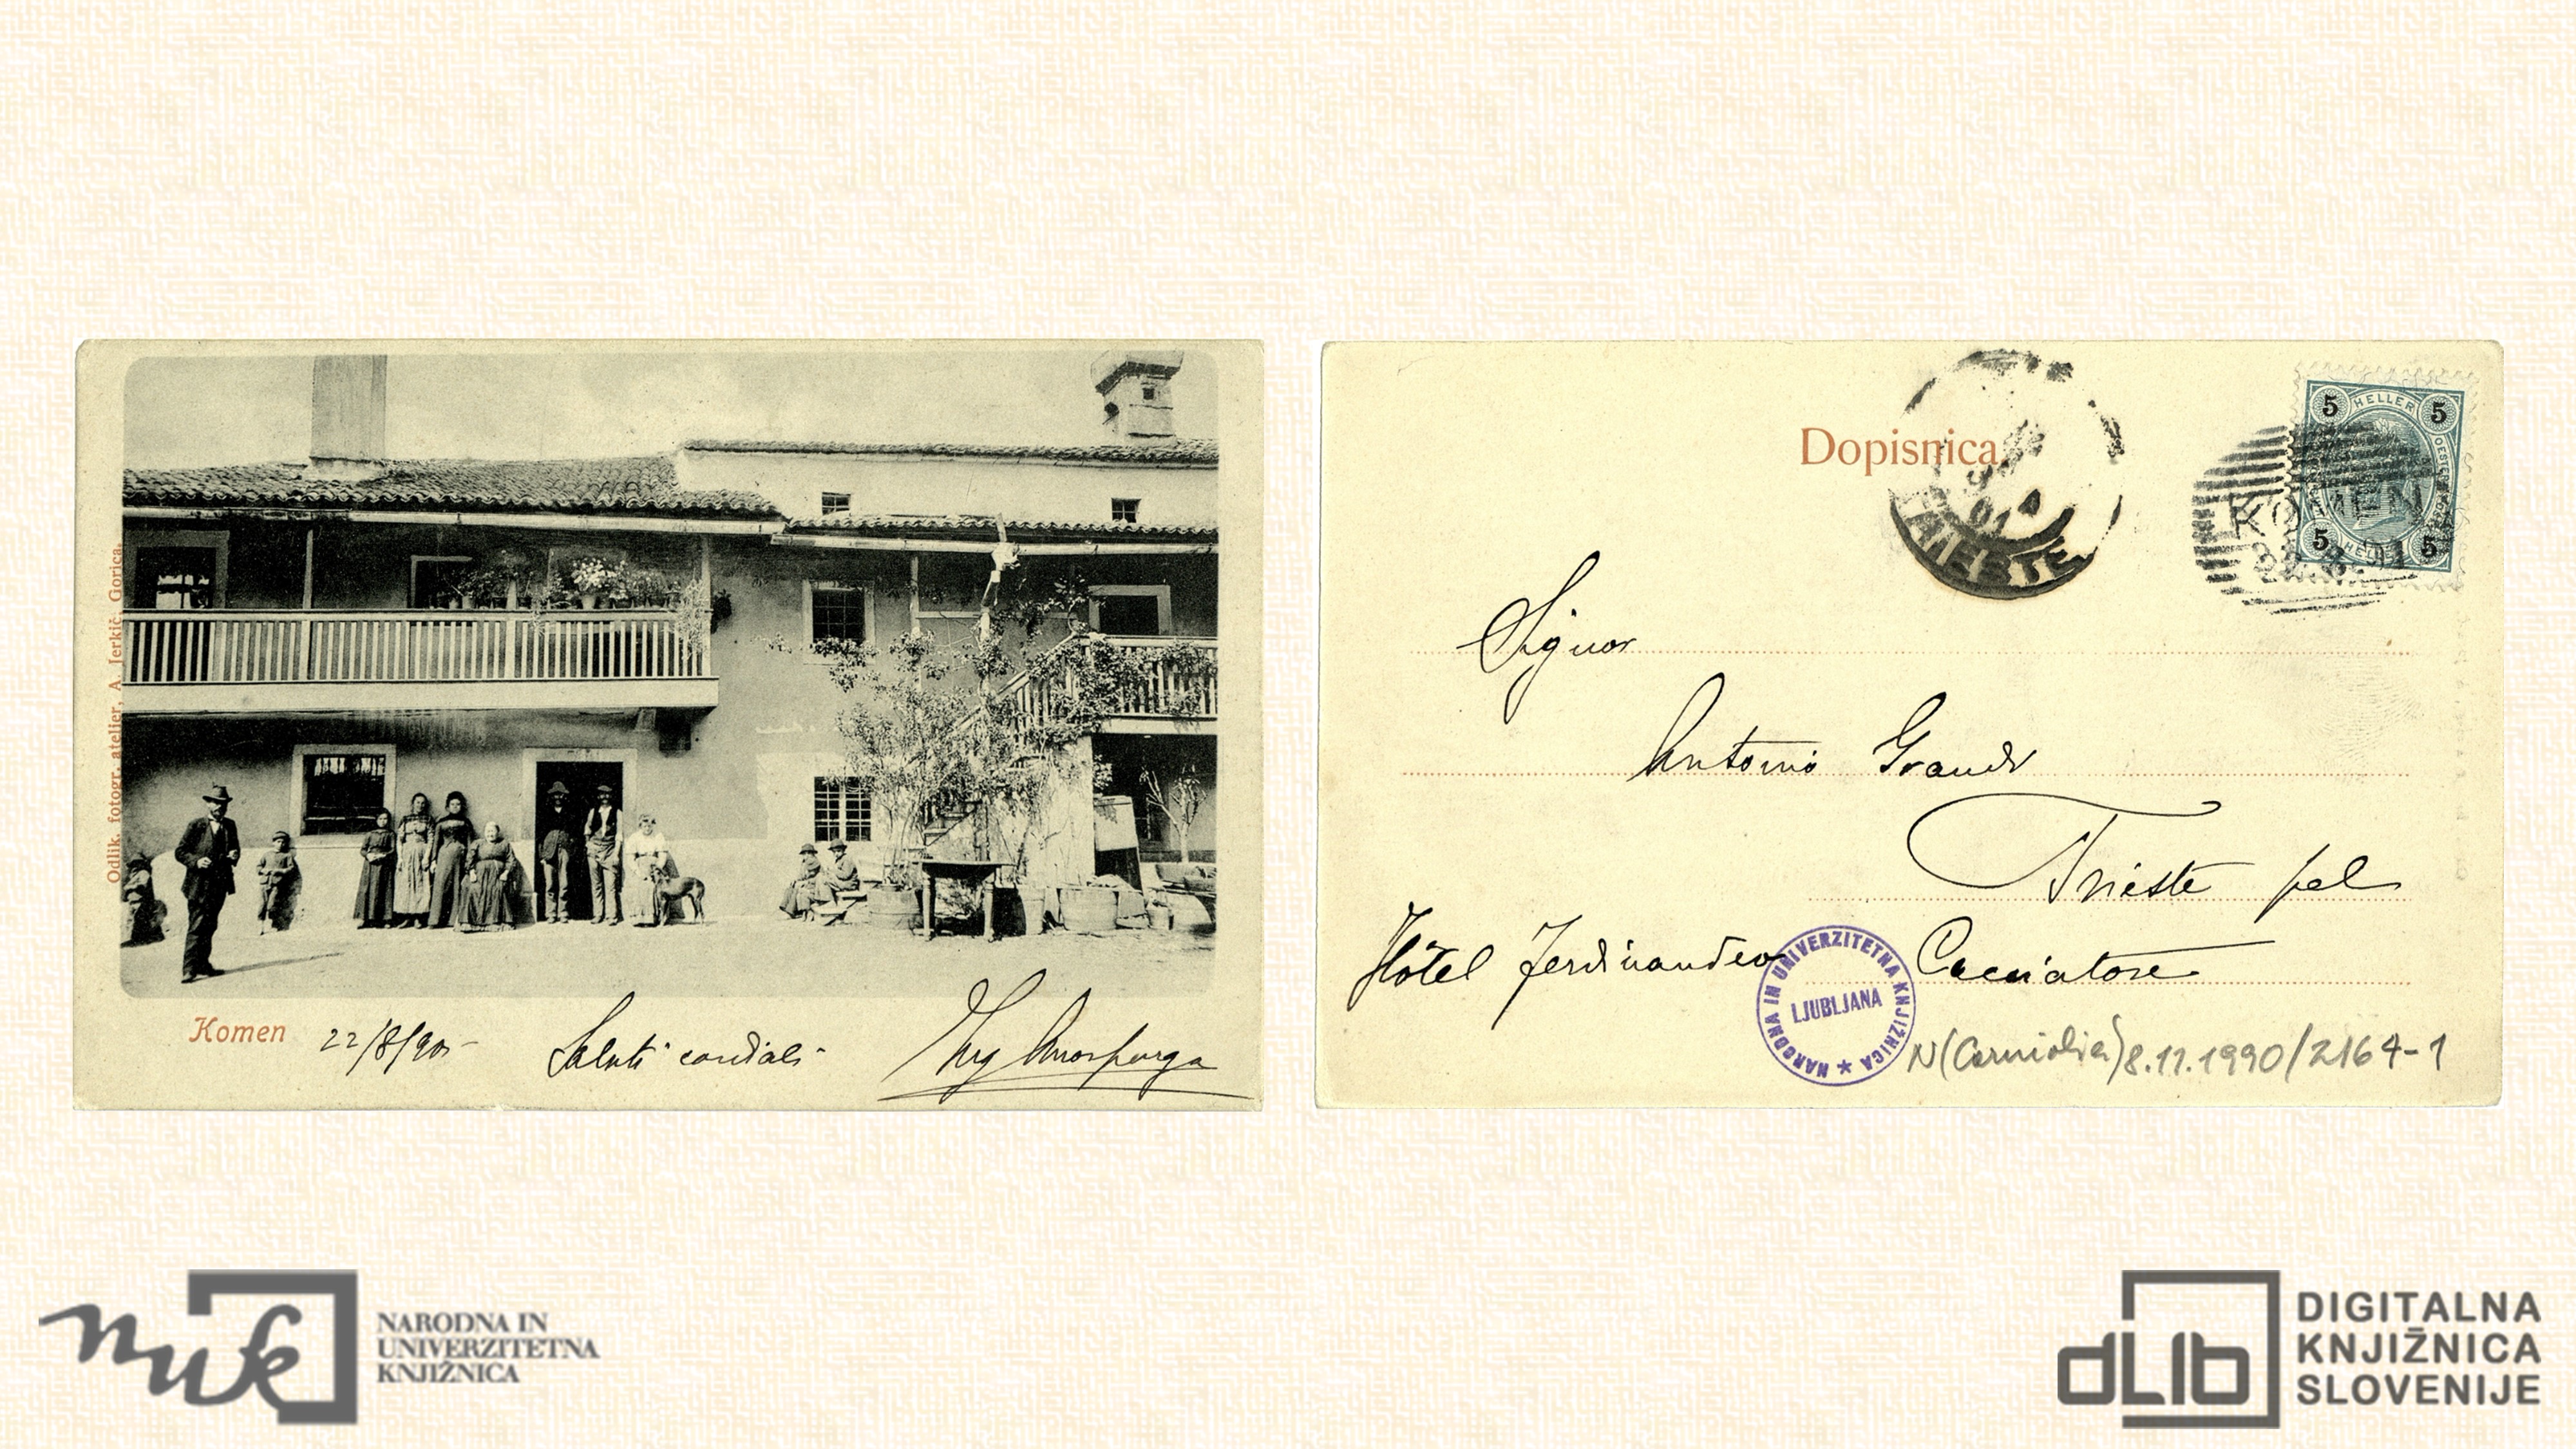 Odlik. fotogr. atelier, A. Jerkič, Gorica.
Komen 22/8/901
Saluti cordiali
Dopisnica
TRIESTE
01
5 HELLER 5
5 HELLER 5
KOMEN
Signor
Antonio Grandi
Trieste pel
Hôtel Ferdinandeo Cacciatore
NARODNA IN UNIVERZITETNA KNJIŽNICA
LJUBLJANA
N(Carniolica)8.11.1990/2164-1
nuk
NARODNA IN
UNIVERZITETNA
KNJIŽNICA
dLib
DIGITALNA
KNJIŽNICA
SLOVENIJE